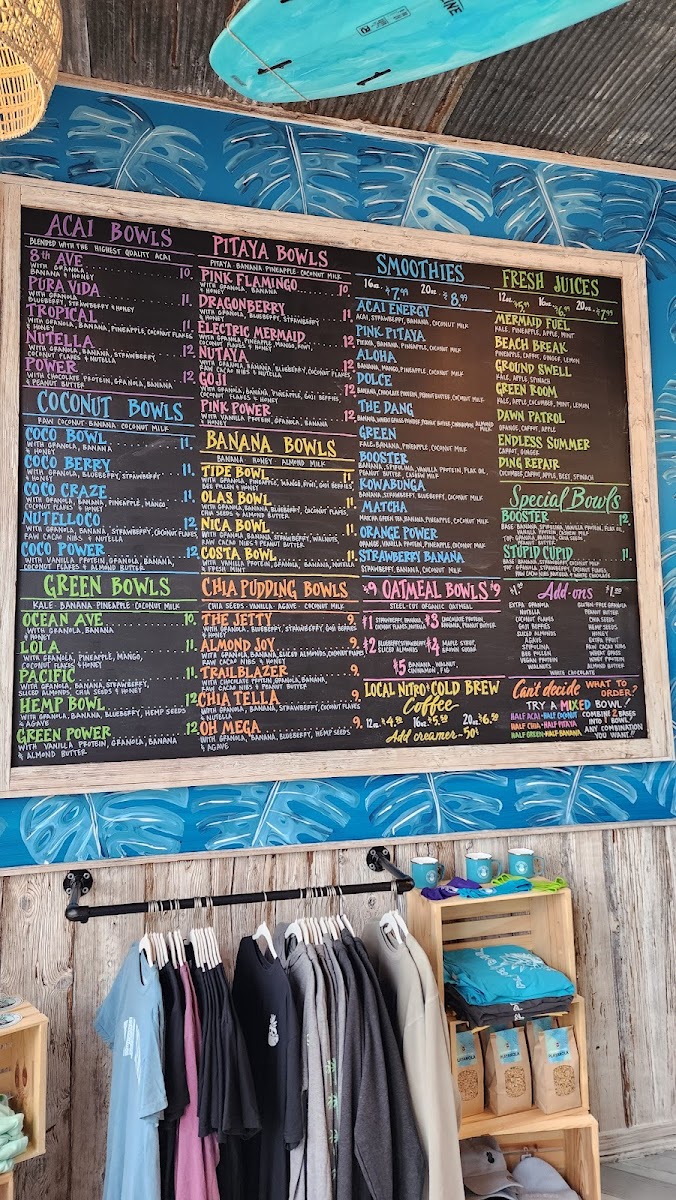 ACAI BOWLS
BLENDED WITH THE HIGHEST QUALITY ACAI
8th AVE 10.
WITH GRANOLA
BANANA & HONEY
PURA VIDA 11.
WITH GRANOLA
BLUEBERRY, STRAWBERRY & HONEY
TROPICAL 11.
WITH GRANOLA, BANANA, PINEAPPLE, COCONUT FLAKES
& HONEY
NUTELLA 12.
WITH GRANOLA, BANANA, STRAWBERRY,
COCONUT FLAKES & NUTELLA
POWER 12.
WITH CHOCOLATE PROTEIN, GRANOLA, BANANA
& PEANUT BUTTER
COCONUT BOWLS
RAW COCONUT · BANANA · COCONUT MILK
COCO BOWL 11.
WITH GRANOLA, BANANA
& HONEY
COCO BERRY 11.
WITH GRANOLA, BLUEBERRY, STRAWBERRY
& HONEY
COCO CRAZE 11.
WITH GRANOLA, BANANA, PINEAPPLE, MANGO,
COCONUT FLAKES & HONEY
NUTELLOCO 12.
WITH GRANOLA, BANANA, STRAWBERRY, COCONUT FLAKES,
RAW CACAO NIBS & NUTELLA
COCO POWER 12.
WITH VANILLA PROTEIN, GRANOLA, BANANA,
COCONUT FLAKES & ALMOND BUTTER
GREEN BOWLS
KALE · BANANA · PINEAPPLE · COCONUT MILK
OCEAN AVE 10.
WITH GRANOLA, BANANA
& HONEY
LOLA 11.
WITH GRANOLA, PINEAPPLE, MANGO,
COCONUT FLAKES & HONEY
PACIFIC 11.
WITH GRANOLA, BANANA, STRAWBERRY,
SLICED ALMONDS, CHIA SEEDS & HONEY
HEMP BOWL 12
WITH GRANOLA, BANANA, BLUEBERRY, HEMP SEEDS
& AGAVE
GREEN POWER 12
WITH VANILLA PROTEIN, GRANOLA, BANANA
& ALMOND BUTTER
PITAYA BOWLS
PITAYA · BANANA · PINEAPPLE · COCONUT MILK
PINK FLAMINGO 10.
WITH GRANOLA, BANANA
& HONEY
DRAGONBERRY 11.
WITH GRANOLA, BLUEBERRY, STRAWBERRY
& HONEY
ELECTRIC MERMAID 11.
WITH GRANOLA, PINEAPPLE, MANGO, KIWI,
COCONUT FLAKES & HONEY
NUTAYA 12
WITH GRANOLA, BANANA, BLUEBERRY, COCONUT FLAKES,
RAW CACAO NIBS & NUTELLA
GOJI 12
WITH GRANOLA, BANANA, PINEAPPLE, GOJI BERRIES,
COCONUT FLAKES & HONEY
PINK POWER 12
WITH VANILLA PROTEIN, GRANOLA, BANANA
& PEANUT BUTTER
BANANA BOWLS
BANANA · HONEY · ALMOND MILK
TIDE BOWL 11.
WITH GRANOLA, PINEAPPLE, MANGO, KIWI, GOJI BERRIES
BEE POLLEN & HONEY
OLAS BOWL 11.
WITH GRANOLA, BANANA, COCONUT FLAKES,
CHIA SEEDS & ALMOND BUTTER
NICA BOWL 11.
WITH GRANOLA, BANANA, STRAWBERRY, WALNUTS,
RAW CACAO NIBS & PEANUT BUTTER
COSTA BOWL 11.
WITH VANILLA PROTEIN, GRANOLA, BANANA, NUTELLA
& FRESH MINT
CHIA PUDDING BOWLS
CHIA SEEDS · VANILLA · AGAVE · COCONUT MILK
THE JETTY 9.
WITH GRANOLA, BLUEBERRY, STRAWBERRY, GOJI BERRIES
& HONEY
ALMOND JOY 9.
WITH GRANOLA, BANANA, SLICED ALMONDS, COCONUT FLAKES
RAW CACAO NIBS & HONEY
TRAILBLAZER 9.
WITH CHOCOLATE PROTEIN, GRANOLA, BANANA,
RAW CACAO NIBS & PEANUT BUTTER
CHIA TELLA 9.
WITH GRANOLA, BANANA, STRAWBERRY, COCONUT FLAKES
& NUTELLA
OH MEGA 9.
WITH GRANOLA, BANANA, BLUEBERRY, HEMP SEEDS
& AGAVE
SMOOTHIES
16oz $7.99 20oz $8.99
ACAI ENERGY
ACAI, STRAWBERRY, BANANA, COCONUT MILK
PINK PITAYA
PITAYA, BANANA, PINEAPPLE, COCONUT MILK
ALOHA
BANANA, MANGO, PINEAPPLE, COCONUT MILK
DOLCE
BANANA, CHOCOLATE PROTEIN, PEANUT BUTTER, COCONUT MILK
THE DANG
BANANA, WHEAT GRASS POWDER, PEANUT BUTTER, CINNAMON, ALMOND MILK
GREEN
KALE, BANANA, PINEAPPLE, COCONUT MILK
BOOSTER
BANANA, SPIRULINA, VANILLA PROTEIN, FLAX OIL,
PEANUT BUTTER, CASHEW MILK
KOWABUNGA
BANANA, STRAWBERRY, BLUEBERRY, COCONUT MILK
MATCHA
MATCHA GREEN TEA, BANANA, PINEAPPLE, COCONUT MILK
ORANGE POWER
ORANGE, VANILLA PROTEIN, PINEAPPLE, COCONUT MILK
STRAWBERRY BANANA
STRAWBERRY, BANANA, COCONUT MILK
$9 OATMEAL BOWLS $9
STEEL-CUT ORGANIC OATMEAL
#1 STRAWBERRY, BANANA, COCONUT FLAKES, NUTELLA
#2 BLUEBERRY, STRAWBERRY, SLICED ALMONDS
#3 CHOCOLATE PROTEIN, BANANA, PEANUT BUTTER
#4 MAPLE SYRUP, BROWN SUGAR
#5 BANANA, WALNUT, CINNAMON, FIG
LOCAL NITRO & COLD BREW
Coffee
12oz $4.50 16oz $5.50 20oz $6.50
Add creamer - 50¢
FRESH JUICES
12oz $5.99 16oz $6.99 20oz $7.99
MERMAID FUEL
KALE, PINEAPPLE, APPLE, MINT
BEACH BREAK
PINEAPPLE, CARROT, GINGER, LEMON
GROUND SWELL
KALE, APPLE, SPINACH
GREEN ROOM
KALE, APPLE, CUCUMBER, MINT, LEMON
DAWN PATROL
ORANGE, CARROT, APPLE
ENDLESS SUMMER
CARROT, GINGER
DING REPAIR
CUCUMBER, CARROT, APPLE, BEET, SPINACH
Special Bowls
BOOSTER 12
BASE: BANANA, SPIRULINA, VANILLA PROTEIN, FLAX OIL
PEANUT BUTTER, CASHEW MILK
TOP: GRANOLA, BANANA, GOJI
PEANUT BUTTER
STUPID CUPID 11.
BASE: STRAWBERRY, BANANA, COCONUT MILK
TOP: GRANOLA, STRAWBERRY, COCONUT FLAKES
RAW CACAO NIBS, NUTELLA & WHITE CHOCOLATE
Add-ons
EXTRA GRANOLA
NUTELLA
COCONUT FLAKES
GOJI BERRIES
SLICED ALMONDS
AGAVE
SPIRULINA
BEE POLLEN
VEGAN PROTEIN
WALNUTS
GLUTEN-FREE GRANOLA
PEANUT BUTTER
CHIA SEEDS
HEMP SEEDS
HONEY
EXTRA FRUIT
RAW CACAO NIBS
WHEAT GRASS
WHEY PROTEIN
ALMOND BUTTER
WHITE CHOCOLATE
Can't decide WHAT TO ORDER?
TRY A MIXED BOWL!
HALF ACAI · HALF COCONUT
HALF CHIA · HALF PITAYA
HALF GREEN · HALF BANANA
COMBINE 2 BASES
INTO 1 BOWL!
ANY COMBINATION
YOU WANT!